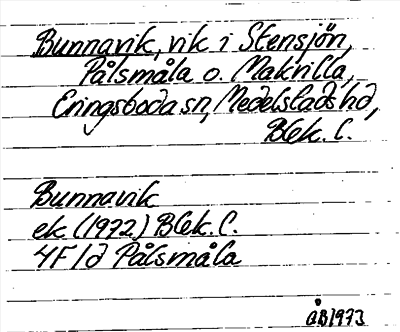 Bunnavik, vik i Stensjön,
Pålsmåla o. Makrilla,
Eringsboda sn, Medelstads hd,
Blek. l.
Bunnavik
ek (1972) Blek. l.
4F1d Pålsmåla
ÖB 1973